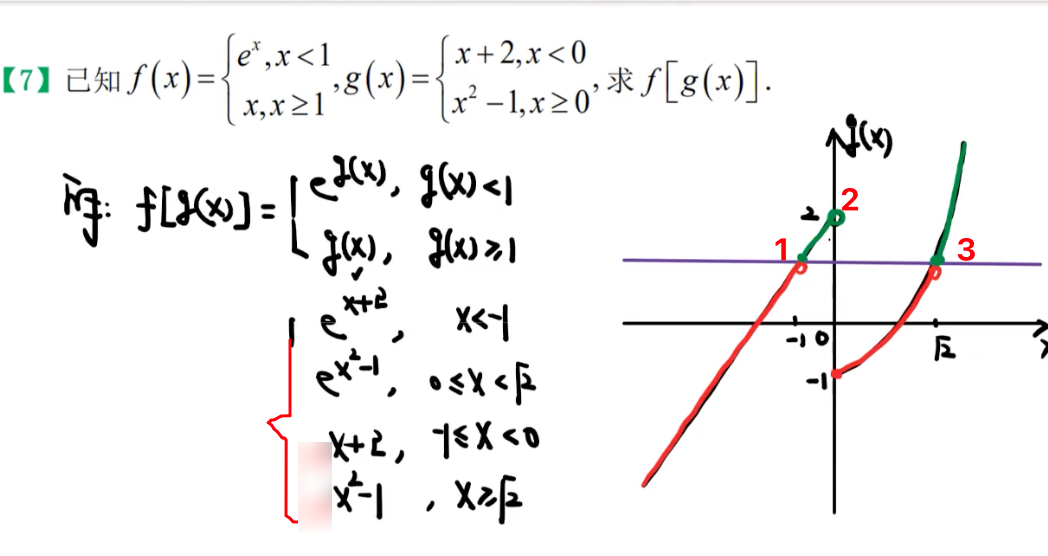 【7】已知 f(x)={e^x, x<1
x, x≥1
, g(x)={x+2, x<0
x²-1, x≥0
, 求 f[g(x)].
解: f[g(x)]={e^g(x), g(x)<1
g(x), g(x)≥1
e^x+2, x<-1
e^x²-1, 0≤x<√2
x+2, -1≤x<0
x²-1, x≥√2
g(x)
2 2
1 3
-1 0 √2 x
-1